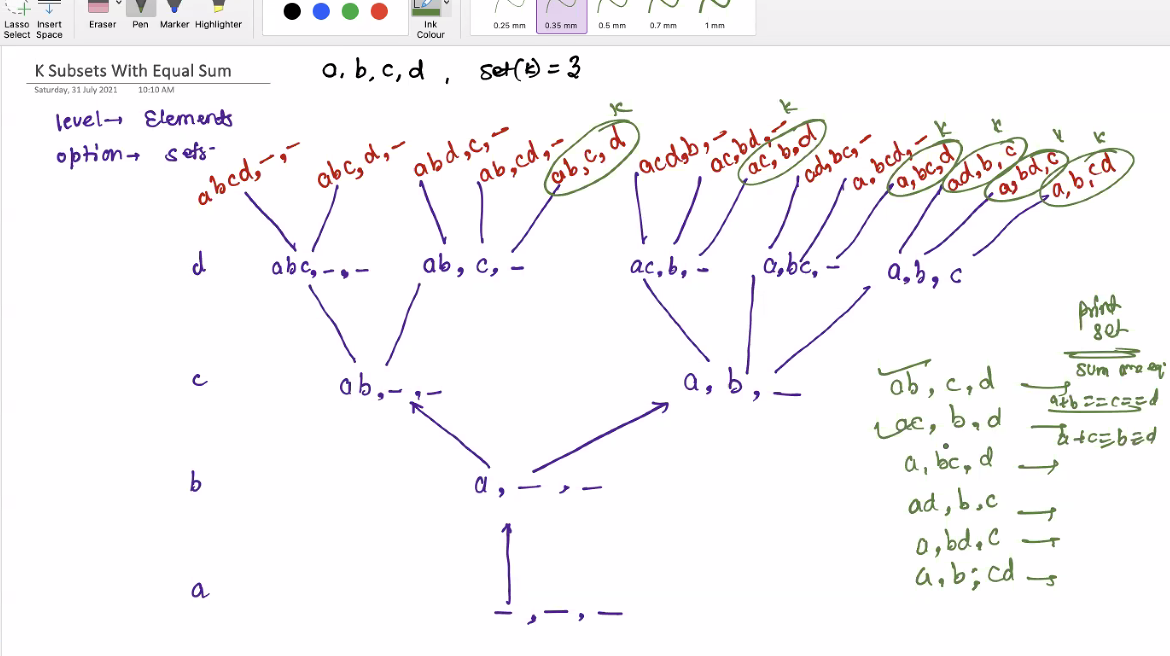 Lasso Select
Insert Space
Eraser
Pen
Marker
Highlighter
Ink Colour
0.25 mm
0.35 mm
0.5 mm
0.7 mm
1 mm
K Subsets With Equal Sum
Saturday, 31 July 2021 10:10 AM
a, b, c, d , set(k) = 3
level→ Elements
option→ sets-
abcd, -, -
abc, d, -
abd, c, -
ab, cd, -
ab, c, d
k
acd, b, -
ac, bd, -
ac, b, d
k
ad, bc, -
a, bcd, -
a, bc, d
k
ad, b, c
k
a, bd, c
k
a, b, cd
k
d
abc, -, -
ab, c, -
ac, b, -
a, bc, -
a, b, c
c
ab, -, -
a, b, -
b
a, -, -
a
-, -, -
print set
sum are eq
ab, c, d
a+b == c == d
ac, b, d
a+c = b = d
a, bc, d
ad, b, c
a, bd, c
a, b, cd